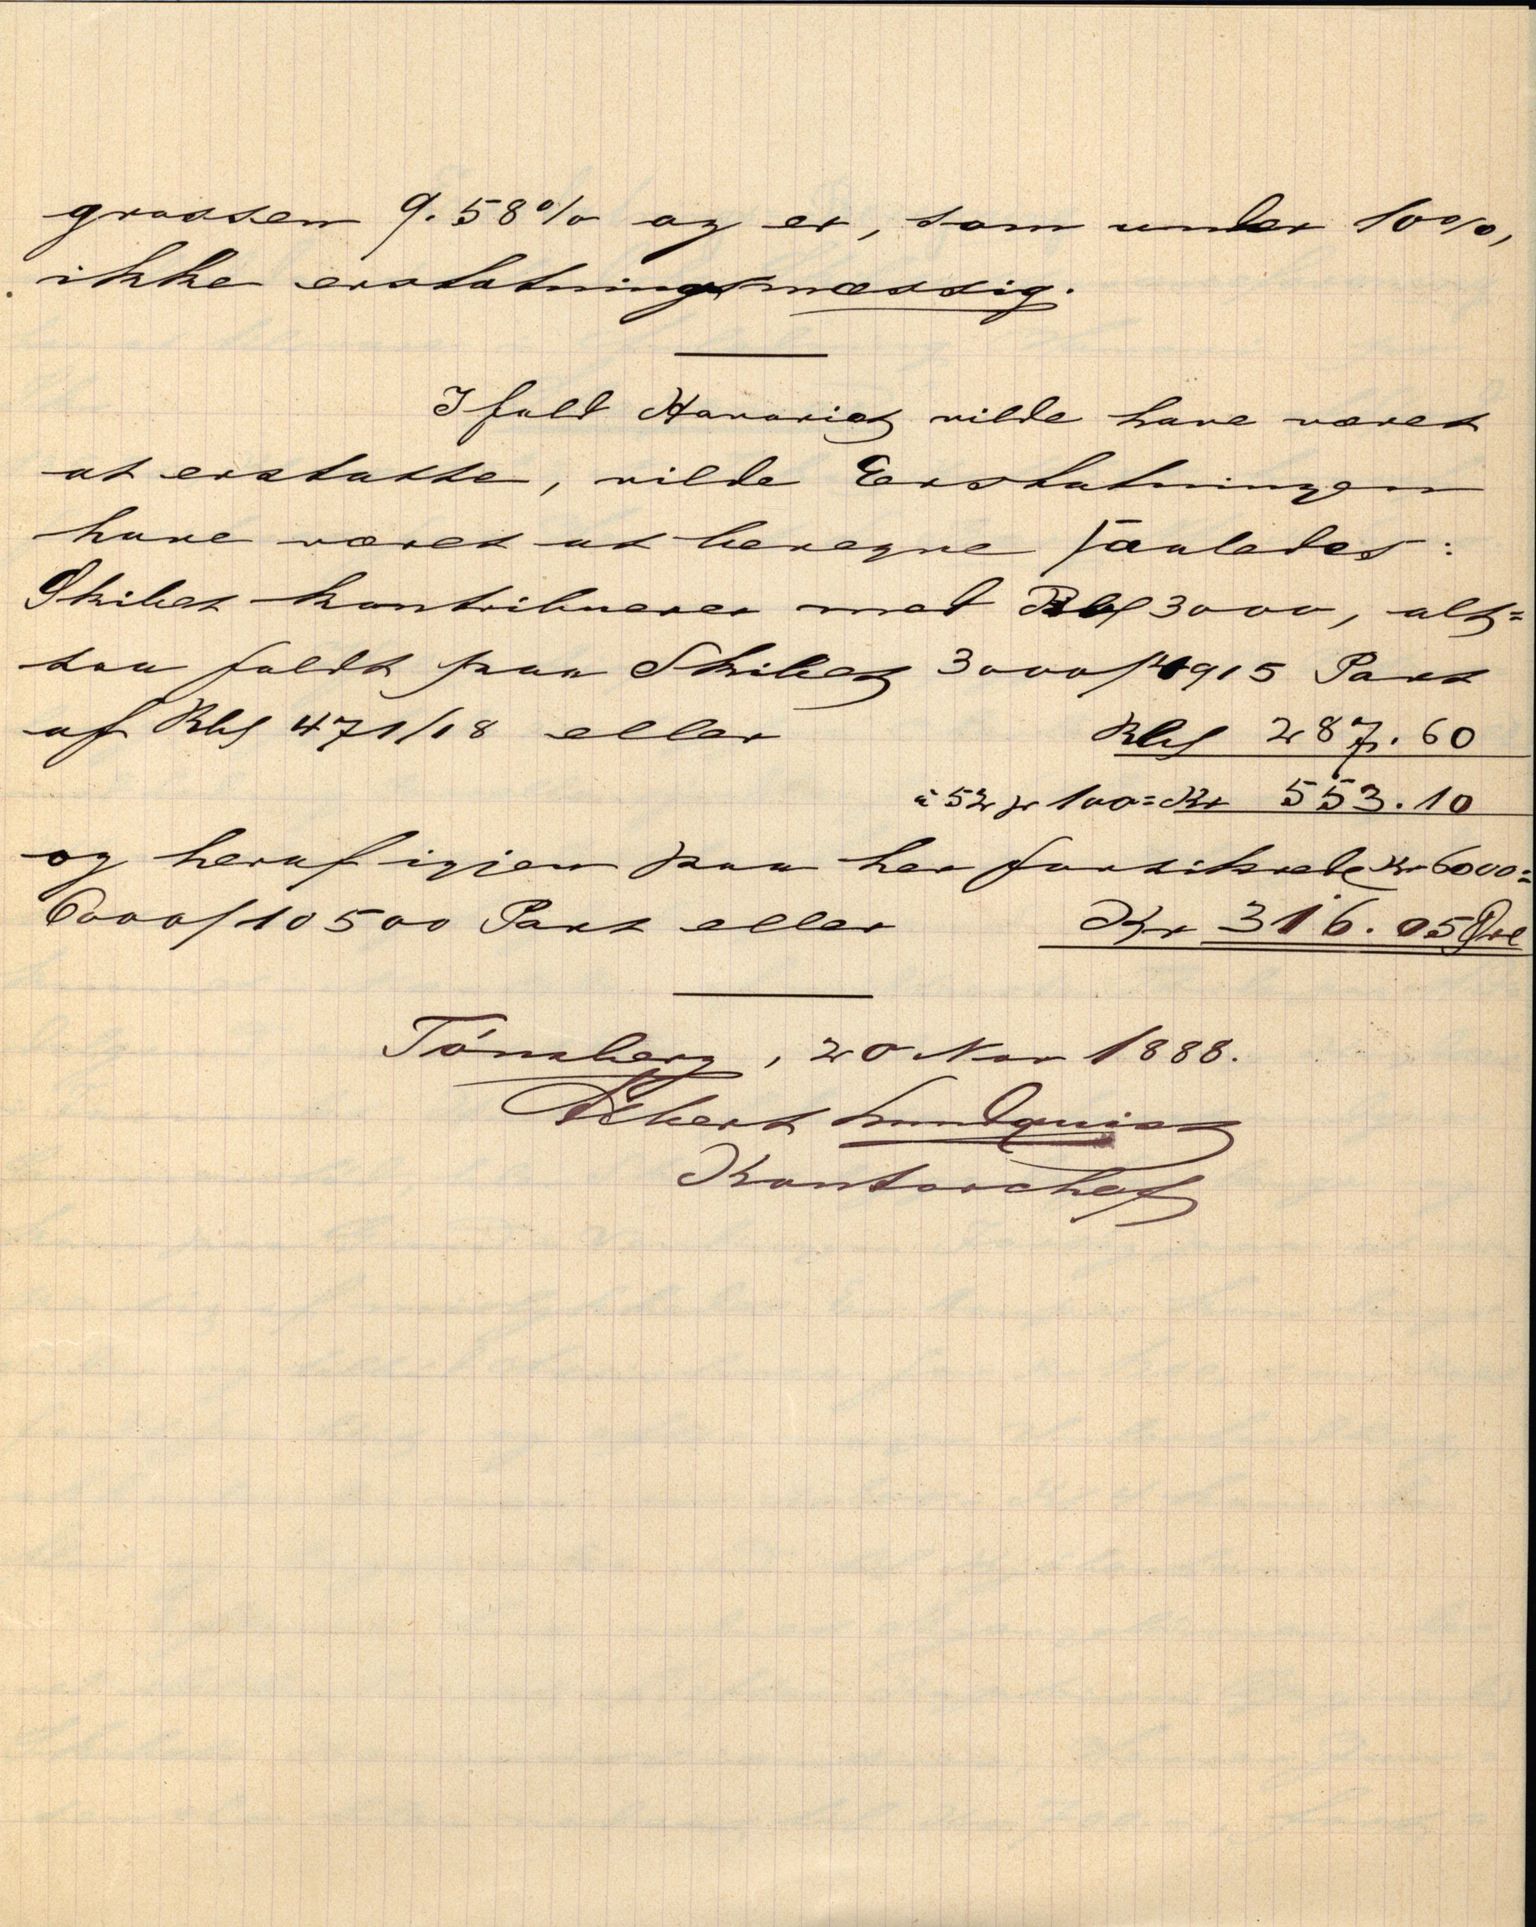 grossen 9.58% og er, som under 10%,
ikke erstatningsmæssig.
Ifald Havariet vilde have været
at erstatte, vilde Erstatningen
have været at beregne saaledes:
Skibet kontribuerer med Rbl 3000, alt=
saa faldt paa Skibet 3000/4915 Part
af Rbl 471/18 eller Rbl 287.60
à 52 pr 100 = Kr 553.10
og heraf igjen paa her forsikrede Kr 6000=
6000/10500 Part eller Kr 316.05 Øre
Tónsberg, 20 Nov 1888.
Albert Lundquist
Kontorchef